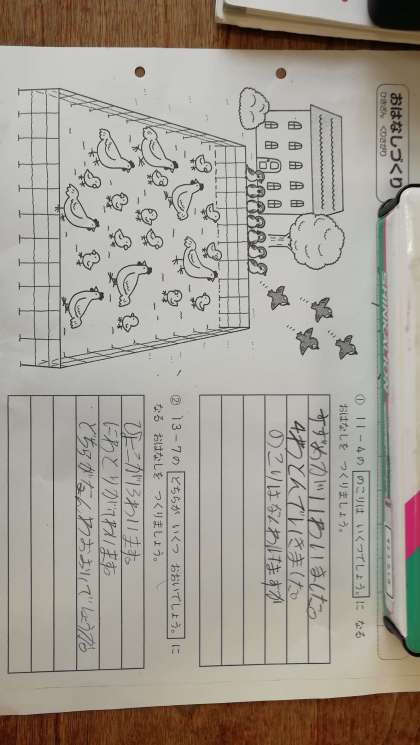 おはなしづくり
ひきざん くりさがり
SHINKANZEN
① 11-4の のこりは いくつでしょう。に なる
おはなしを つくりましょう。
すずめが11わいました。
4わとんでいきました。
のこりはなんわいますか
② 13-7の どちらが いくつ おおいでしょう。に
なる おはなしを つくりましょう。
ひよこが13わいます。
にわとりが7わいます
どちらがなんわおおいでしょうか